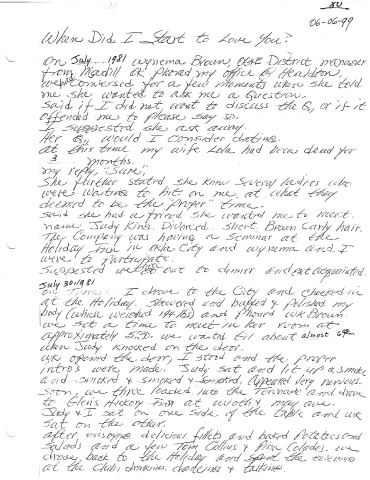 06-06-99
When Did I Start to Love You?
On July 1981 Wynema Brown, OG&E District manager
from Madill OK phoned my office @ Healdton,
we conversed for a few moments when she told
me she wanted to ask me a question.
Said if I did not want to discuss the Q, or if it
offended me to please say so.
I suggested she ask away.
Her Q, would I consider dating.
at this time my wife Lola had been dead for
3 months.
my reply, "Sure",
She further stated she knew several ladies who
were waiting to hit on me, at what they
deemed to be the "proper" time.
Said she had a friend she wanted me to meet.
name Judy King. Divorced. Short Brown Curly hair.
The Company was having a seminar at the
Holiday Inn in City and Wynema and I
were to participate.
Suggested we go out to dinner and get acquainted.
July 30, 1981
I drove to the City and checked in
at the Holiday. Showered and bathed & polished my
body (which weighed 194 lbs) and phoned WK Brown.
we set a time to meet in her room at
approximately 5:30. we waited til about almost 6
when Judy knocked on the door.
WK opened the door, I stood and the proper
intros were made. Judy sat and lit up a smoke
and smoked & smoked & smoked. Appeared very nervous.
Soon, we three loaded into the Toronado and drove
to Hickory at
Judy & I sat on one side of the table and WK
sat on the other.
after enjoying delicious fillets and baked potatoes and
salads and a few Tom Collins & Pina Coladas. we
drove back to the Holiday and spent the evening
at the Club, drinking, dancing & talking.